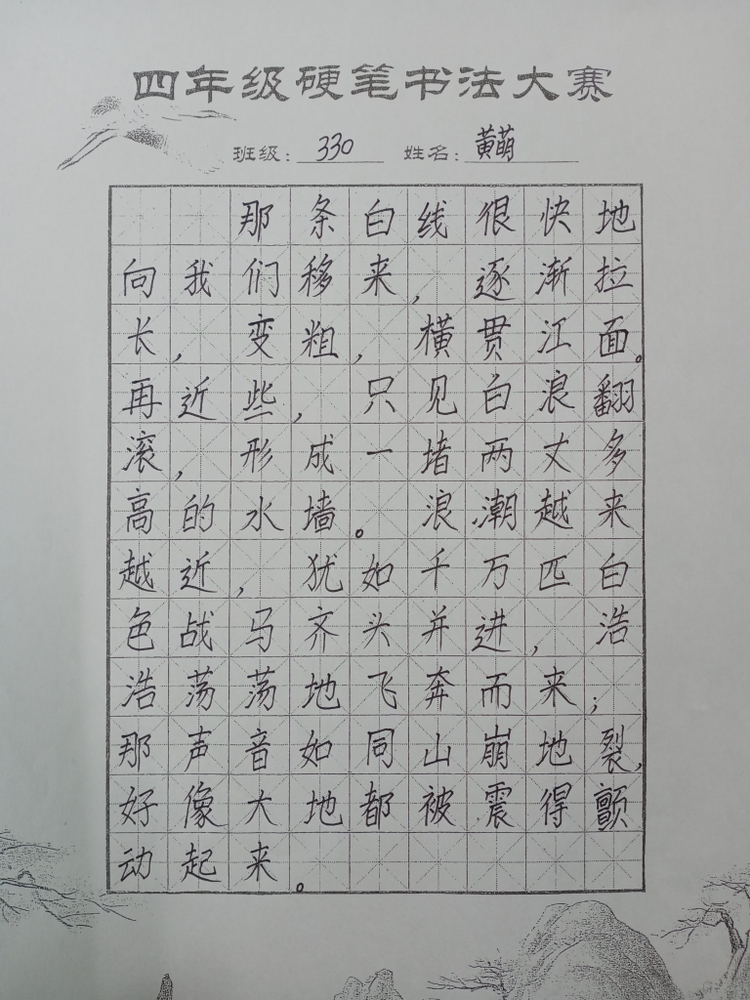 四年级硬笔书法大赛
班级：330 姓名：黄萌
那条白线很快地
向我们移来，逐渐拉
长，变粗，横贯江面。
再近些，只见白浪翻
滚，形成一堵两丈多
高的水墙。浪潮越来
越近，犹如千万匹白
色战马齐头并进，浩
浩荡荡地飞奔而来；
那声音如同山崩地裂，
好像大地都被震得颤
动起来。